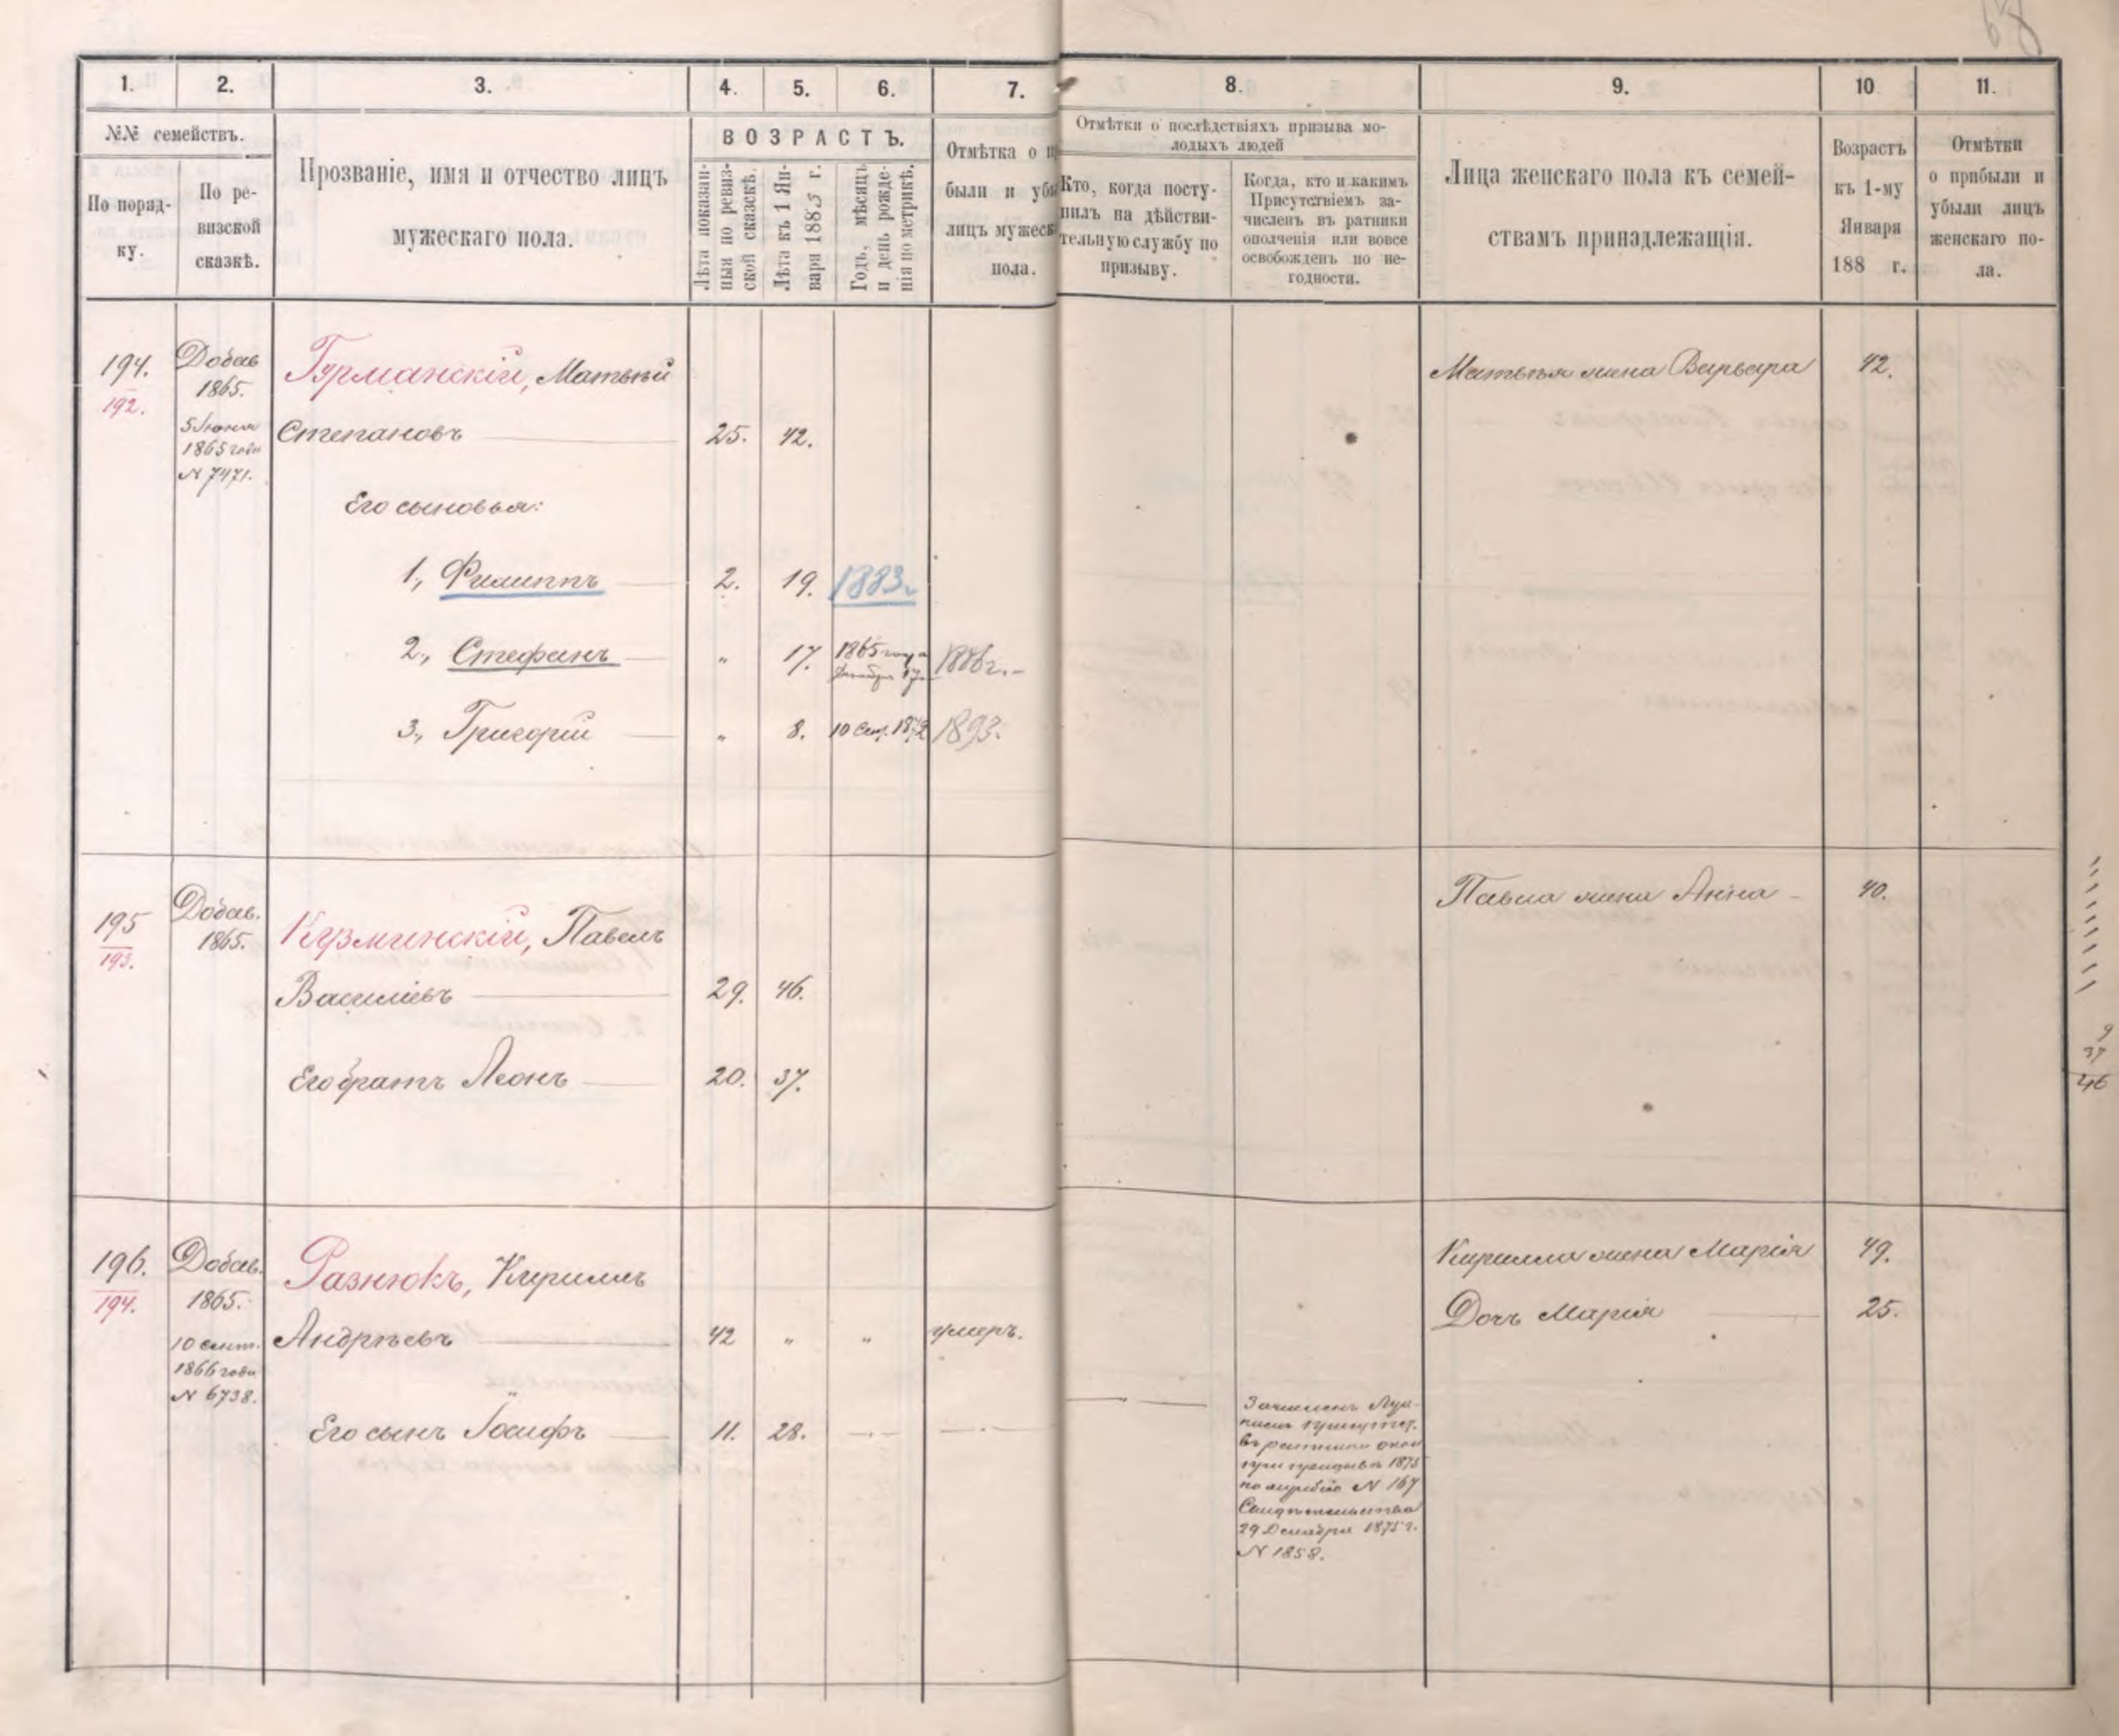 68
1. 2. 3. 4. 5. 6. 7. 8. 9. 10 11.
№№ семействъ.
По поряд-
ку.
По ре-
визской
сказкѣ.
Прозваніе, имя и отчество лицъ
мужескаго пола.
ВОЗРАСТЪ.
Лѣта показан-
ныя по ревиз-
ской сказскѣ.
Лѣта къ 1 Ян-
варя 1883 г.
Годъ, мѣсяцъ
и день рожде-
нія по метрикѣ.
Отмѣтка о п
были и убы
лицъ мужеск
пола.
Отмѣтки о послѣдствіяхъ призыва мо-
лодыхъ людей
Кто, когда посту-
пилъ на дѣйстви-
тельную службу по
призыву.
Когда, кто и какимъ
Присутствіемъ за-
численъ въ ратники
ополченія или вовсе
освобожденъ по не-
годности.
Лица женскаго пола къ семей-
ствамъ принадлежащія.
Возрастъ
къ 1-му
Января
188 г.
Отмѣтки
о прибыли и
убыли лицъ
женскаго по-
ла.
194.
192.
Добав
1865.
5 Іюня
1865 года
N 7471.
Гурманскій, Матвѣй
Степановъ 25. 42.
Его сыновья:
1., Филиппъ 2. 19. 1883г
2., Стефанъ " 17. 1865 года
Декабря 17 1886г.
3., Григорій " 8. 10 Сен. 1872 1893.
Матвѣя жена Варвара 42.
195
193.
Добав.
1865.
Кузминскій, Павелъ
Василіевъ 29. 46.
Его братъ Леонъ 20. 37.
Павла жена Анна 40.
9
37
46
196.
194.
Добав.
1865.
10 сент.
1866 года
N 6738.
Разнюкъ, Кириллъ
Андрѣевъ 42 " " умеръ.
Его сынъ Іосифъ 11. 28.
Зачисленъ
въ ратники опол
при призывѣ 1875
по жребію N 167
Свидѣтельство
29 Декабря 1875 г.
N 1858.
Кирилла жена Марія 49.
Дочь Марія 25.